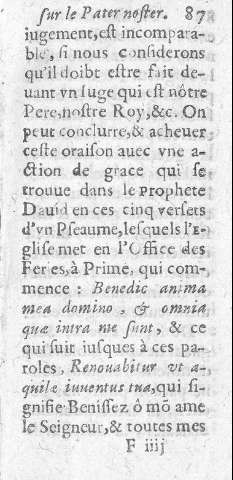 ſur le Pater noſter. 87
iugement, eſt incompara-
ble, ſi nous conſiderons
qu'il doibt eſtre fait de-
uant vn Iuge qui eſt nôtre
Pere, noſtre Roy, &c. On
peut conclurre, & acheuer
ceſte oraiſon auec vne a-
ction de grace qui ſe
trouue dans le Prophete
Dauid en ces cinq verſets
d'vn Pſeaume, leſquels l'E-
gliſe met en l'Office des
Feries, à Prime, qui com-
mence : Benedic anima
mea domino, & omnia
quæ intra me ſunt, & ce
qui ſuit iuſques à ces pa-
roles, Renouabitur vt a-
quilæ iuuentus tua, qui ſi-
gnifie Beniſſez ô mõ ame
le Seigneur, & toutes mes
F iiij